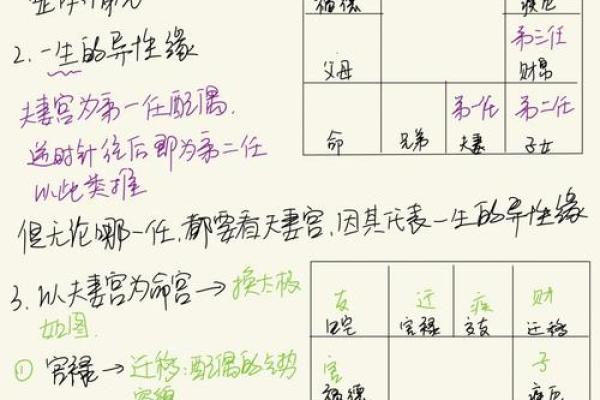 福德 疾厄
2. 一生的异性缘
第三任
父母 财帛
夫妻宫为第一任配偶.
第一任 第二任
逆时针往后即为第二任
命 兄弟 夫妻 子女
以此类推
但无论哪一任,都要看夫妻宫,因其代表一生的异性缘
3. 以夫妻宫为命宫→换太极
友 迁 疾 财
如图.
田宅 官禄 交友 迁移
① 官禄→迁移:配偶的
官 子
福德 疾厄